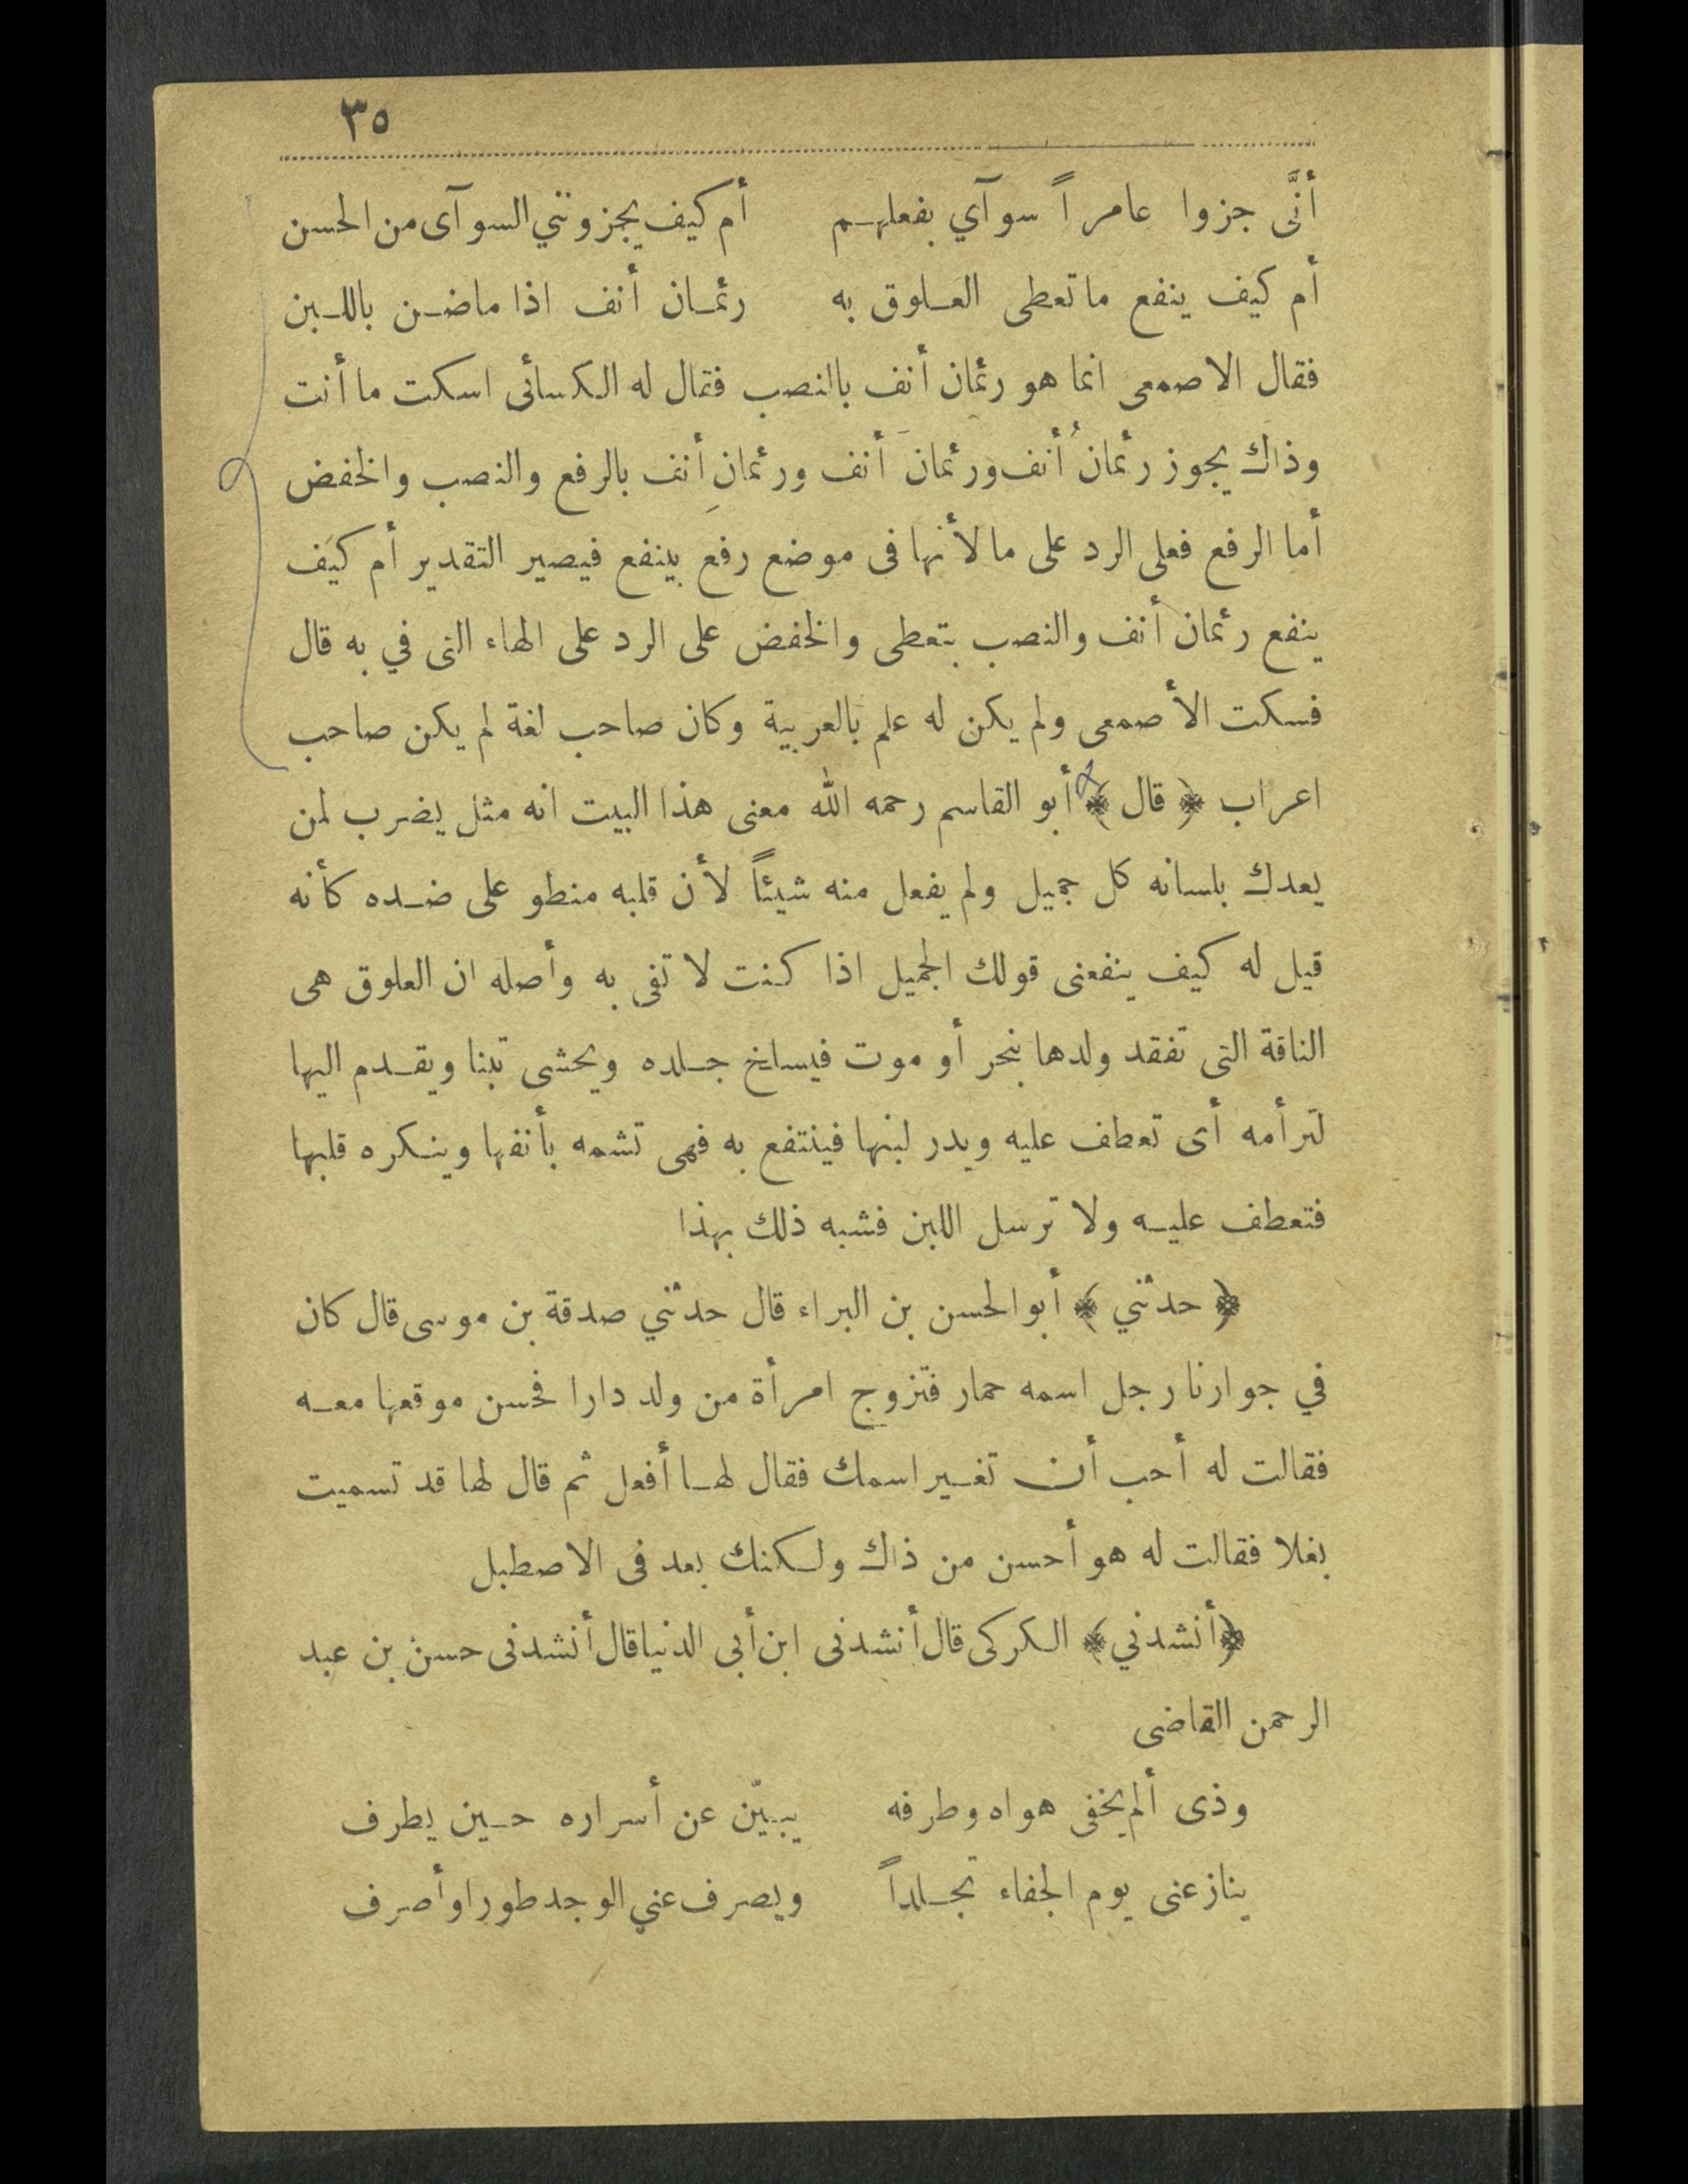 ٣٥
أنَّى جزوا عامراً سوآي بفعلهم أم كيف يجزونني السوآى من الحسن
أم كيف ينفع ما تعطى العلوق به رئمان أنف اذا ماضن باللبن
فقال الاصمعى انما هو رئمان أنف بالنصب فقال له الكسائى اسكت ما أنت
وذاك يجوز رئمانُ أنف ورئمانَ أنف ورئمانِ أنف بالرفع والنصب والخفض
أما الرفع فعلى الرد على ما لأنها فى موضع رفع بينفع فيصير التقدير أم كيف
ينفع رئمان أنف والنصب بتعطى والخفض على الرد على الهاء التى في به قال
فسكت الأصمعى ولم يكن له علم بالعربية وكان صاحب لغة لم يكن صاحب
اعراب ﴿ قال ﴾ أبو القاسم رحمه الله معنى هذا البيت انه مثل يضرب لمن
يعدك بلسانه كل جميل ولم يفعل منه شيئاً لأن قلبه منطو على ضده كأنه
قيل له كيف ينفعنى قولك الجميل اذا كنت لا تفى به وأصله ان العلوق هى
الناقة التى تفقد ولدها بنحر أو موت فيسلخ جلده ويحشى تبنا ويقدم اليها
لترأمه أى تعطف عليه ويدر لبنها فينتفع به فهى تشمه بأنفها وينكره قلبها
فتعطف عليه ولا ترسل اللبن فشبه ذلك بهذا
﴿ حدثني ﴾ أبو الحسن بن البراء قال حدثني صدقة بن موسى قال كان
في جوارنا رجل اسمه حمار فتزوج امرأة من ولد دارا فحسن موقعها معه
فقالت له أحب أن تغير اسمك فقال لها أفعل ثم قال لها قد تسميت
بغلا فقالت له هو أحسن من ذاك ولكنك بعد فى الاصطبل
﴿أنشدني﴾ الكركى قال أنشدنى ابن أبى الدنيا قال أنشدنى حسن بن عبد
الرحمن القاضى
وذى ألم يخفى هواه وطرفه يبيّن عن أسراره حين يطرف
ينازعنى يوم الجفاء تجلداً ويصرف عني الوجد طورا وأصرف